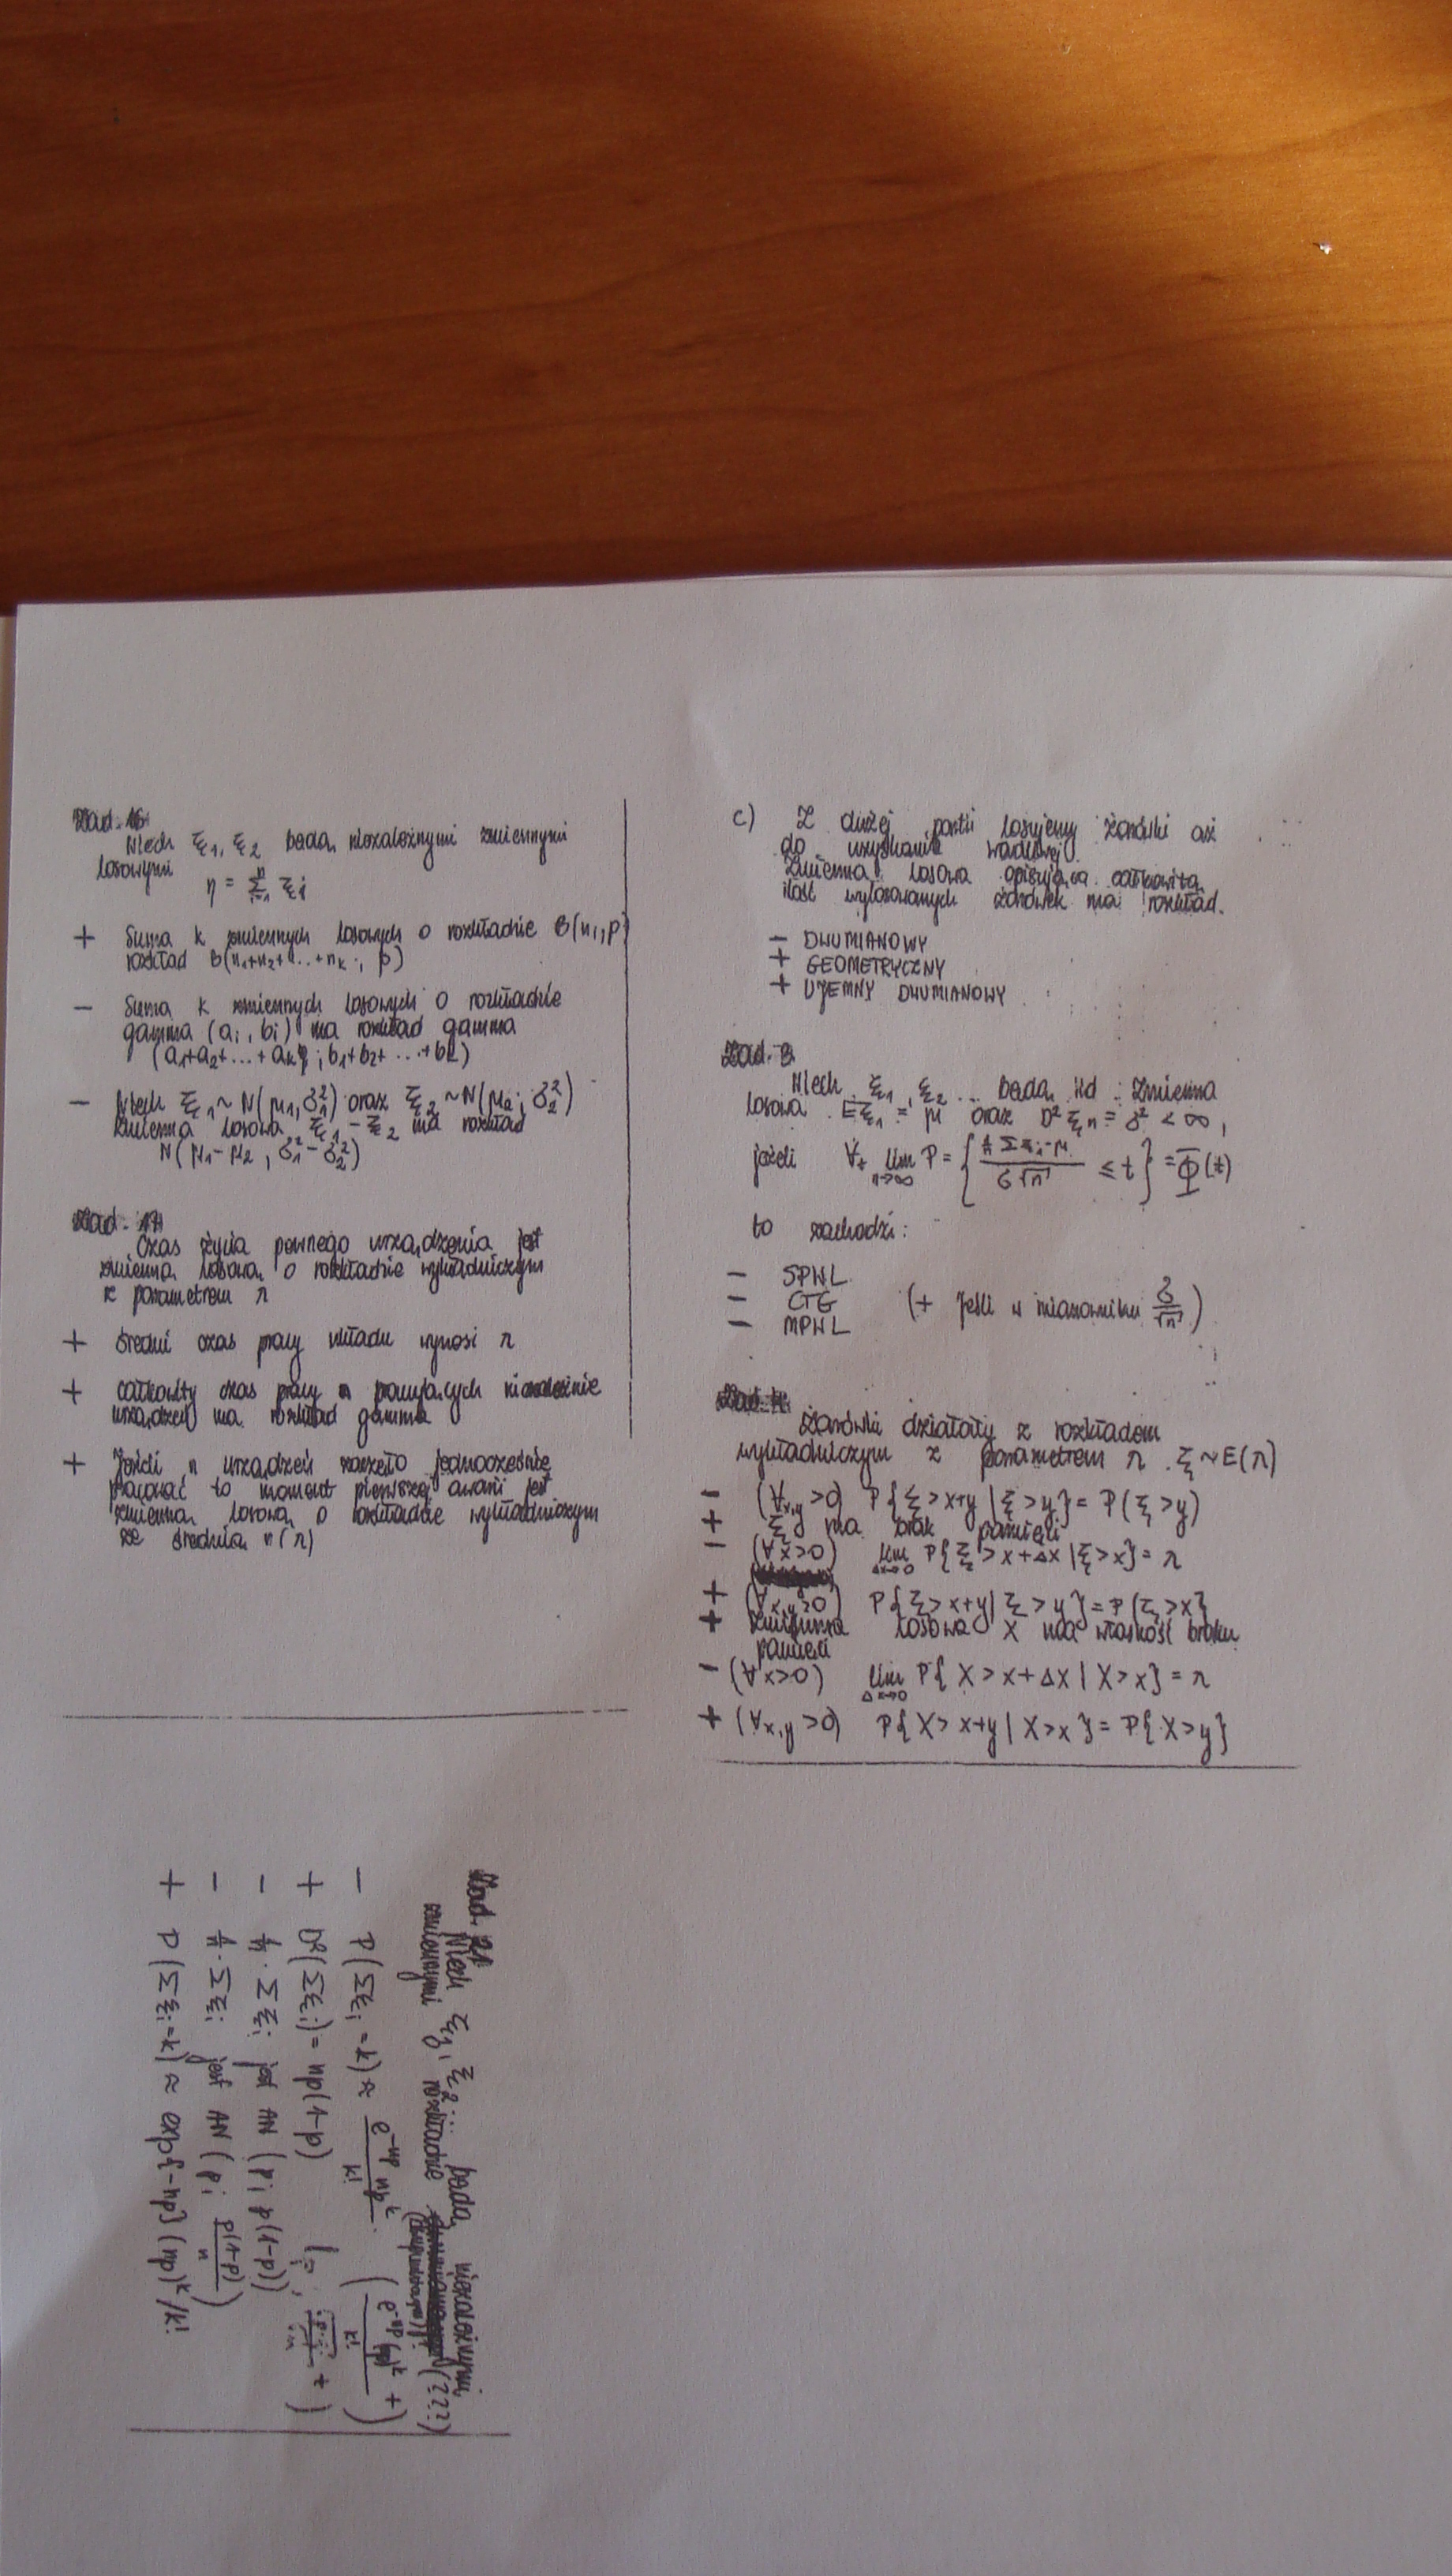 Zad. 16
Niech ξ1, ξ2 będą niezależnymi zmiennymi
losowymi
η = Σ ξi
+ Suma k zmiennych losowych o rozkładzie B(ni, p)
rozkład B(n1+n2+...+nk; p)
- Suma k zmiennych losowych o rozkładzie
gamma (ai, bi) ma rozkład gamma
(a1+a2+...+ak; b1+b2+...+bk)
- Niech ξ1 ~ N(μ1, σ1²) oraz ξ2 ~ N(μ2; σ2²)
zmienna losowa ξ1 - ξ2 ma rozkład
N(μ1 - μ2, σ1² - σ2²)
Zad. 17
Czas życia pewnego urządzenia jest
zmienną losową o rozkładzie wykładniczym
z parametrem λ
+ średni czas pracy układu wynosi λ
+ całkowity czas pracy n pracujących niezależnie
urządzeń ma rozkład gamma
+ Jeżeli n urządzeń zaczęło jednocześnie
pracować to moment pierwszej awarii jest
zmienną losową o rozkładzie wykładniczym
ze średnią n(λ)
c) Z dużej partii losujemy żarówki aż
do uzyskania wadliwej.
Zmienna losowa opisująca całkowitą
ilość wylosowanych żarówek ma rozkład.
- DWUMIANOWY
+ GEOMETRYCZNY
+ UJEMNY DWUMIANOWY
Zad. 3
Niech ξ1, ξ2 ... będą iid. Zmienna
losowa Eξ1 = μ oraz D²ξn = σ² < ∞,
jeżeli ∀t lim n→∞ P = { (1/n Σξi - μ) / (σ√n) ≤ t } = Φ(t)
to zachodzi:
- SPWL
- CTG (+ jeśli w mianowniku σ/√n)
- MPWL
Żarówki działały z rozkładem
wykładniczym z parametrem λ. ξ ~ E(λ)
- (∀x,y >0) P{ξ > x+y | ξ > y} = P(ξ > y)
+ ξ ma brak pamięci
- (∀x>0) lim Δx→0 P{ξ > x+Δx | ξ > x} = λ
+ (∀x,y ≥0) P{ξ > x+y | ξ > y} = P{ξ > x}
+ Zmienna losowa X ma własność braku
pamięci
- (∀x>0) lim Δx→0 P{X > x+Δx | X > x} = λ
+ (∀x,y >0) P{X > x+y | X > x} = P{X > y}
Zad. 21
Niech ξ1, ξ2... będą niezależnymi,
zmiennymi o rozkładzie (???)
- P(Σξi = k) ≈ e^-np np^k / k! ( e^-np (np)^k / k! + )
+ D²(Σξi) = np(1-p)
- 1/n · Σξi jest AN (p; p(1-p))
- 1/n · Σξi jest AN (p; p(1-p)/n)
+ P(Σξi = k) ≈ exp{-np} (np)^k / k!